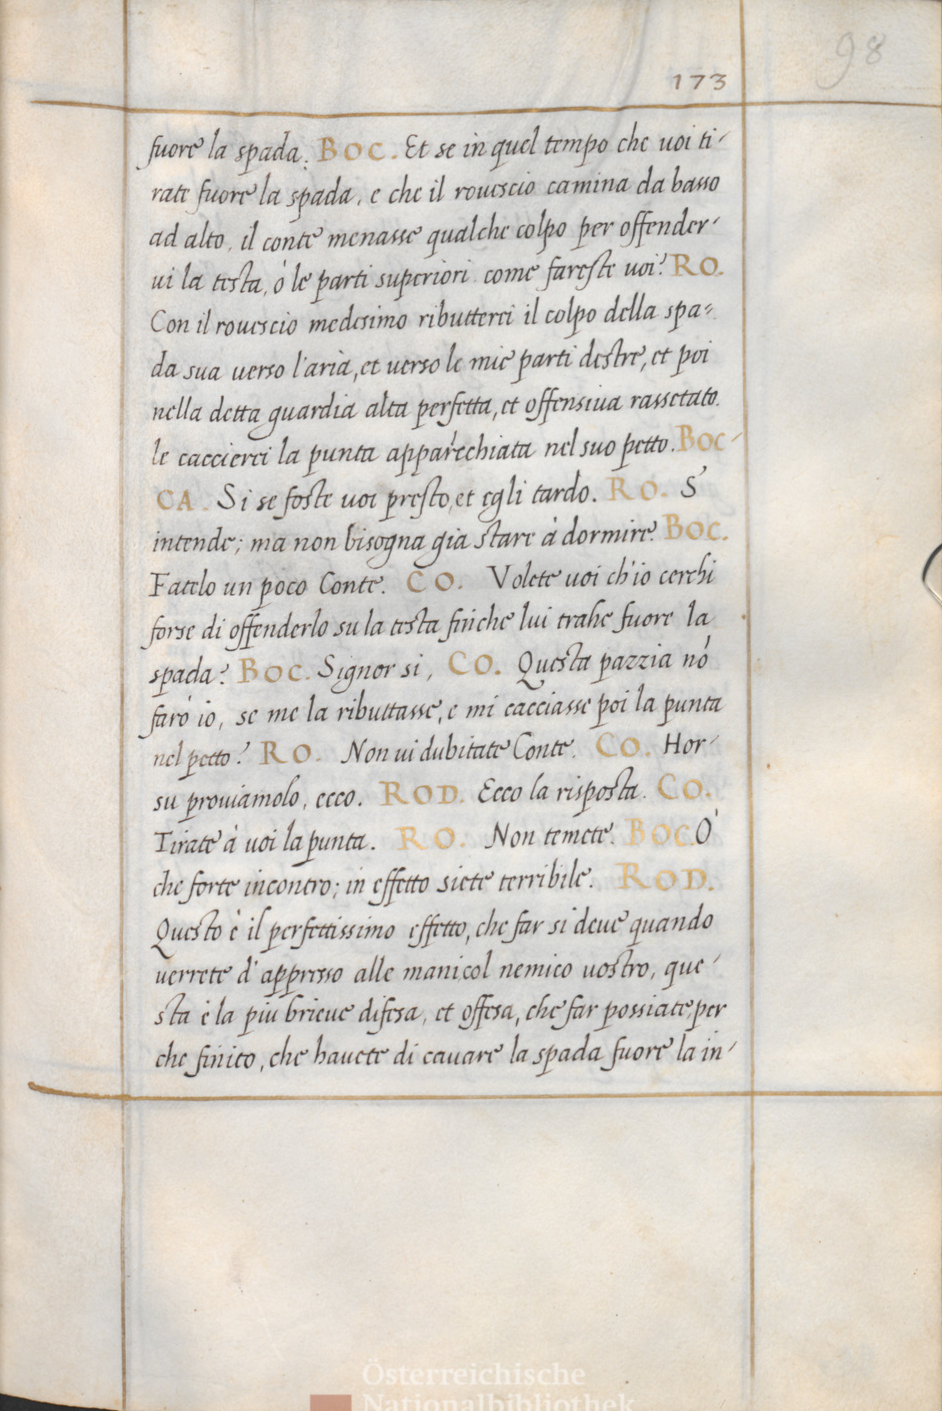 98
173
fuore la spada. BOC. Et se in quel tempo che voi ti-
rate fuore la spada, e che il rouescio camina da basso
ad alto, il conte menasse qualche colpo per offender-
ui la testa, ò le parti superiori come fareste uoi? RO.
Con il rouescio medesimo ributterei il colpo della spa-
da sua uerso l'aria, et uerso le mie parti destre, et poi
nella detta guardia alta perfetta, et offensiua rassettato
le caccierei la punta apparechiata nel suo petto. BOC-
CA. Si se foste uoi presto, et egli tardo. RO. S'
intende; ma non bisogna già stare à dormire. BOC.
Fatelo un poco Conte. CO. Volete uoi ch'io cerchi
forse di offenderlo su la testa finche lui trahe fuore la
spada? BOC. Signor si, CO. Questa pazzia nō
farò io, se me la ributtasse, e mi cacciasse poi la punta
nel petto? RO. Non ui dubitate Conte. CO. Hor-
su prouiamolo, ecco. ROD. Ecco la risposta. CO.
Tirate à uoi la punta. RO. Non temete. BOC. O'
che forte incontro; in effetto siete terribile. ROD.
Questo è il perfettissimo effetto, che far si deue quando
uerrete d'appresso alle mani col nemico uostro, que-
sta è la più brieue difesa, et offesa, che far possiate, per
che finito, che hauete di cauare la spada fuore la in-
Österreichische
Nationalbibliothek